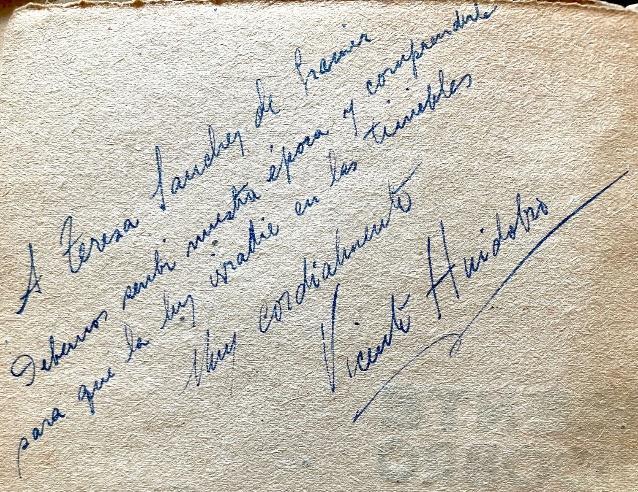 A Teresa Sanchez de
Debemos sentir nuestra época y comprenderla
para que la luz irradie en las tinieblas
Muy cordialmente
Vicente Huidobro